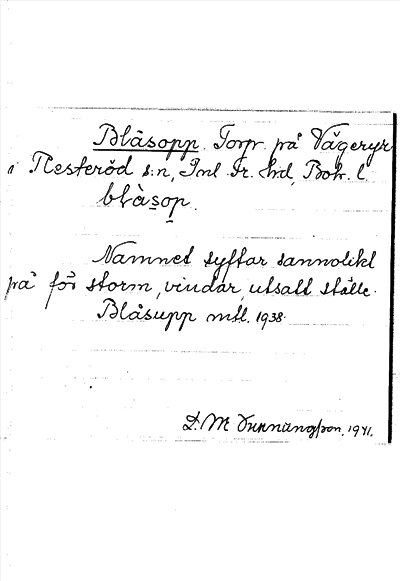 Blåsopp. Torp på Vägeryr
i Hesteröd s:n, Inl. Fr. hd, Boh. l.
blåsop.
Namnet syftar sannolikt
på för storm, vindar, utsatt ställe.
Blåsupp mtl. 1938.
D. M. Gunnungsson. 1941.